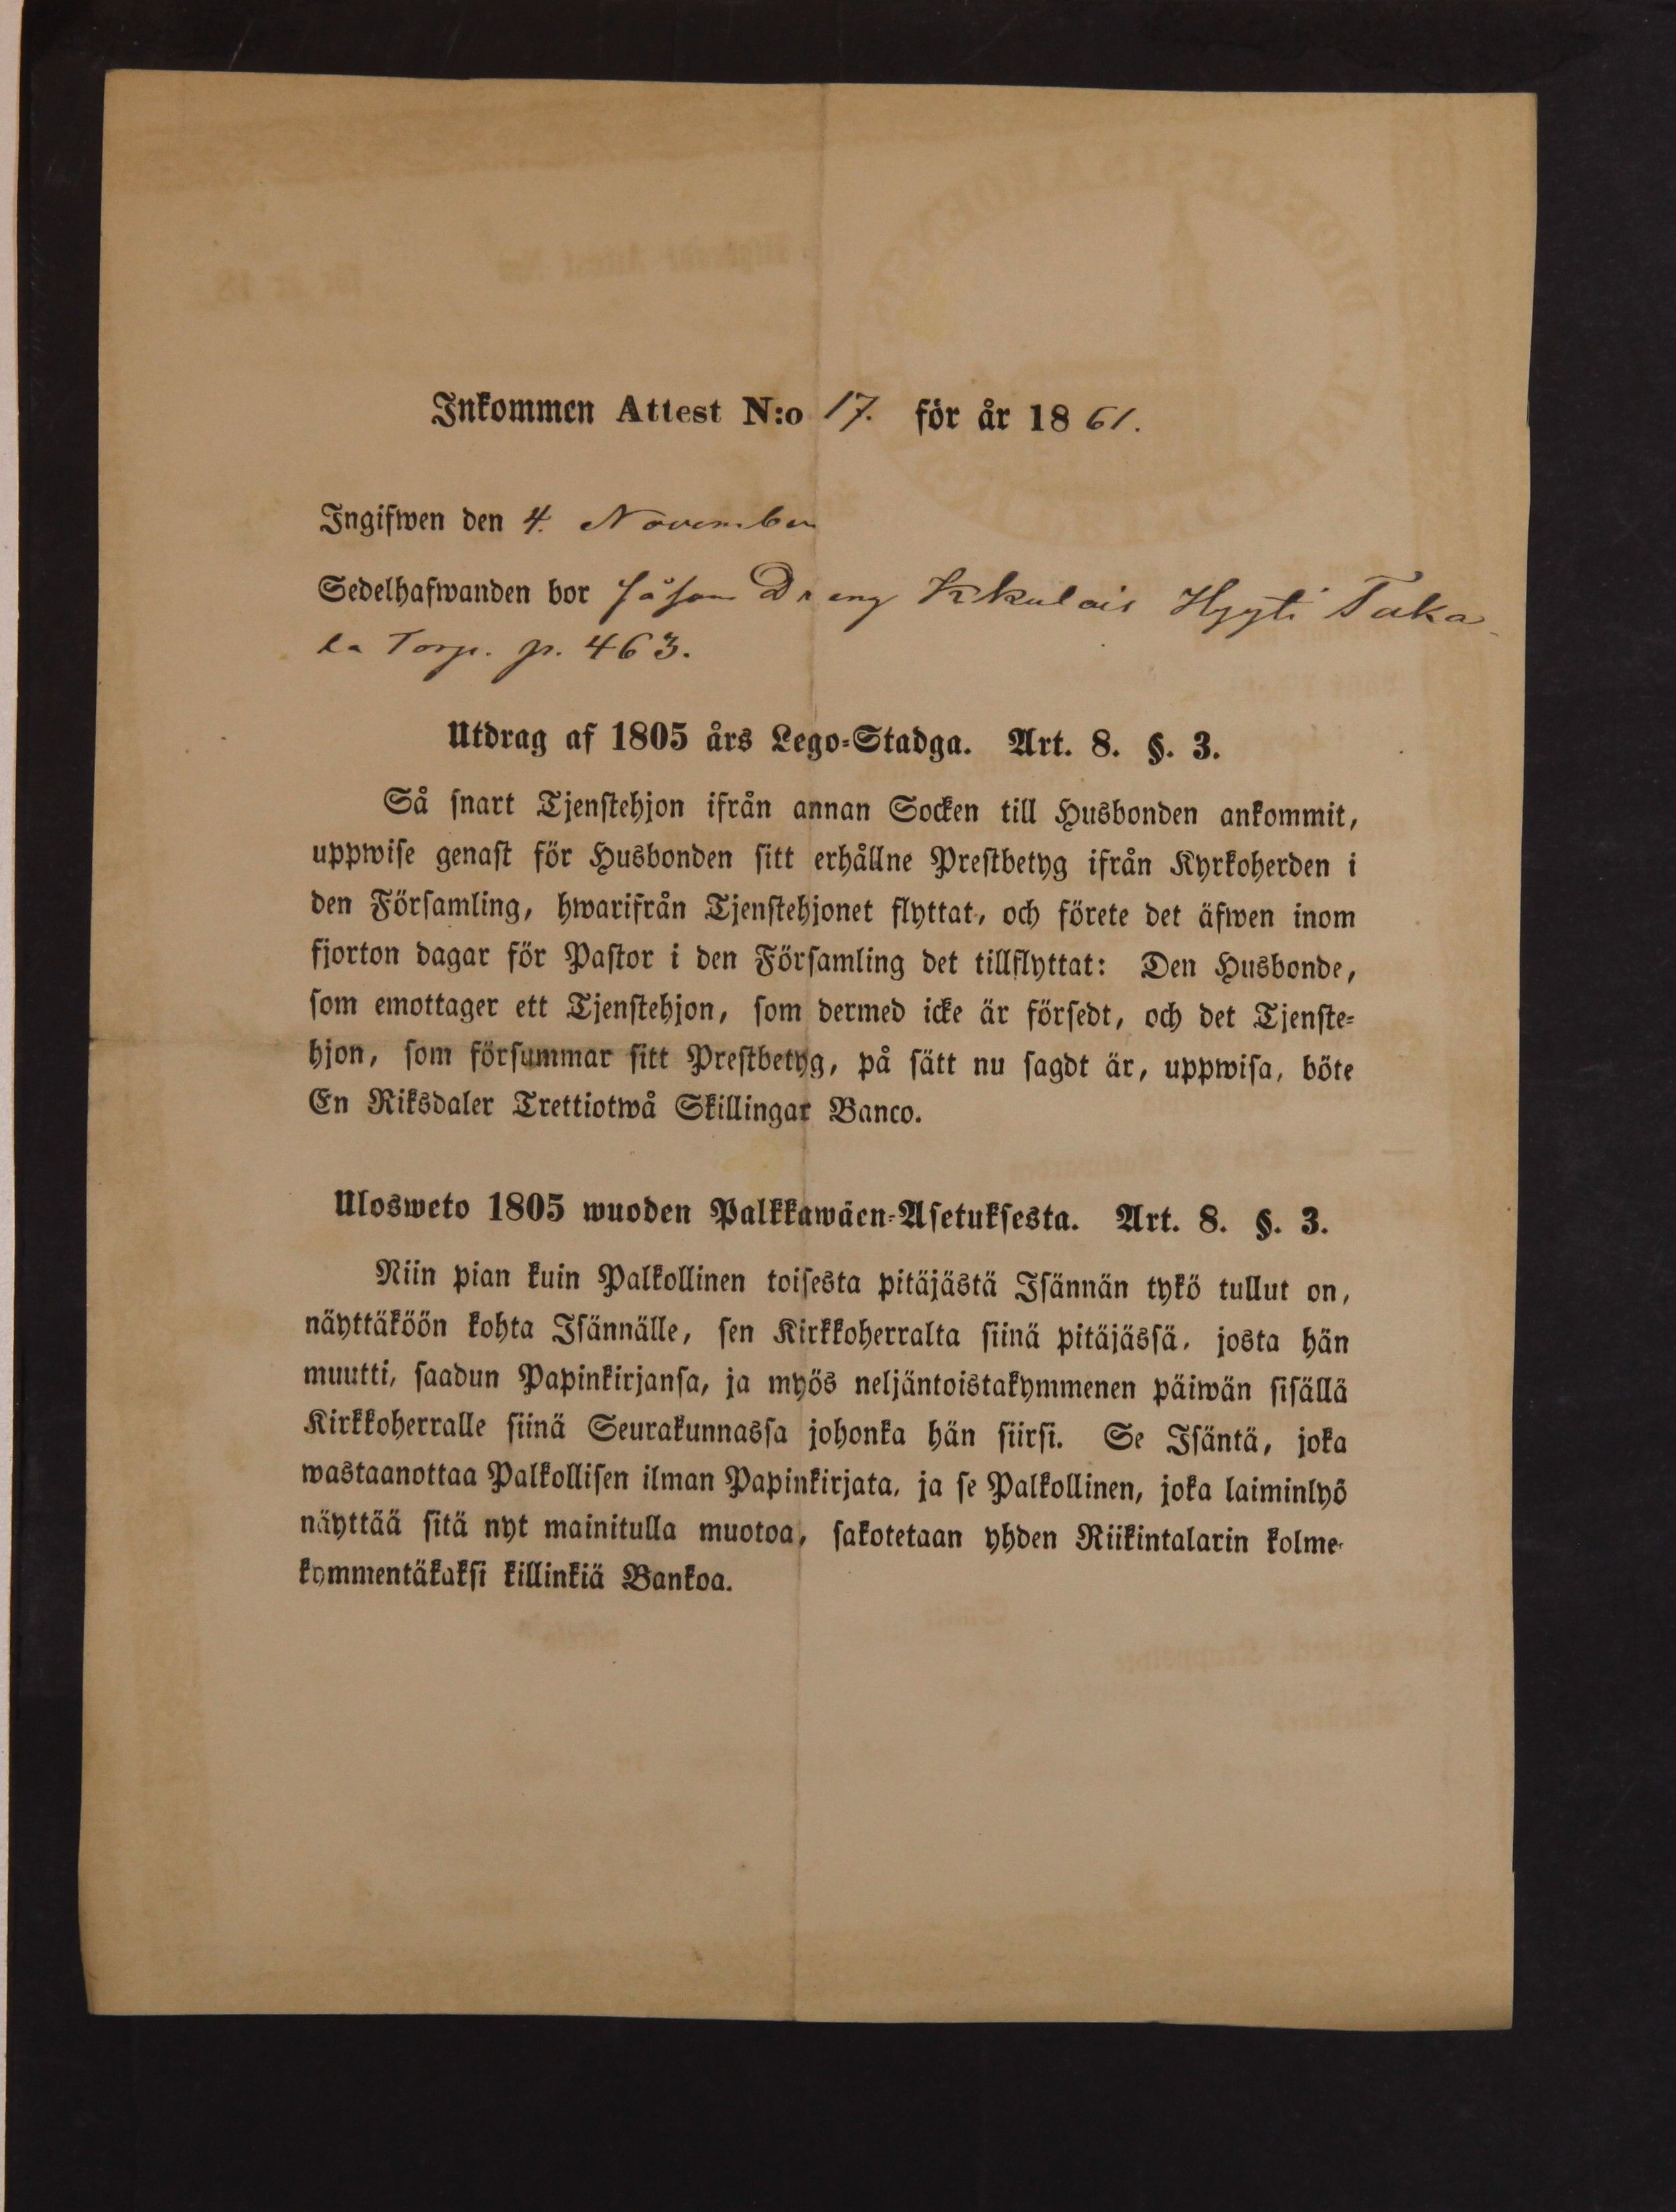 Inkommen Attest N:o 17. för år 1861.
Ingifwen den 4. November
Sedelhafwanden bor såsom Dreng Kkulais Hyyti Taka
la Torp. p. 463.
Utdrag af 1805 års Lego-Stadga. Art. 8. §. 3.
Så snart Tjenstehjon ifrån annan Socken till Husbonden ankommit,
uppwise genast för Husbonden sitt erhållne Prestbetyg ifrån Kyrkoherden i
den Församling, hwarifrån Tjenstehjonet flyttat, och förete det äfwen inom
fjorton dagar för Pastor i den Församling det tillflyttat: Den Husbonde,
som emottager ett Tjenstehjon, som dermed icke är försedt, och det Tjenste-
hjon, som försummar sitt Prestbetyg, på sätt nu sagdt är, uppwisa, böte
En Riksdaler Trettiotwå Skillingar Banco.
Ulosweto 1805 wuoden Palkkawäen-Asetuksesta. Art. 8. §. 3.
Niin pian kuin Palkollinen toisesta pitäjästä Isännän tykö tullut on,
näyttäköön kohta Isännälle, sen Kirkkoherralta siinä pitäjässä, josta hän
muutti, saadun Papinkirjansa, ja myös neljäntoistakymmenen päiwän sisällä
Kirkkoherralle siinä Seurakunnassa johonka hän siirsi. Se Isäntä, joka
wastaanottaa Palkollisen ilman Papinkirjata, ja se Palkollinen, joka laiminlyö
näyttää sitä nyt mainitulla muotoa, sakotetaan yhden Riikintalarin kolme-
kymmentäkaksi killinkiä Bankoa.